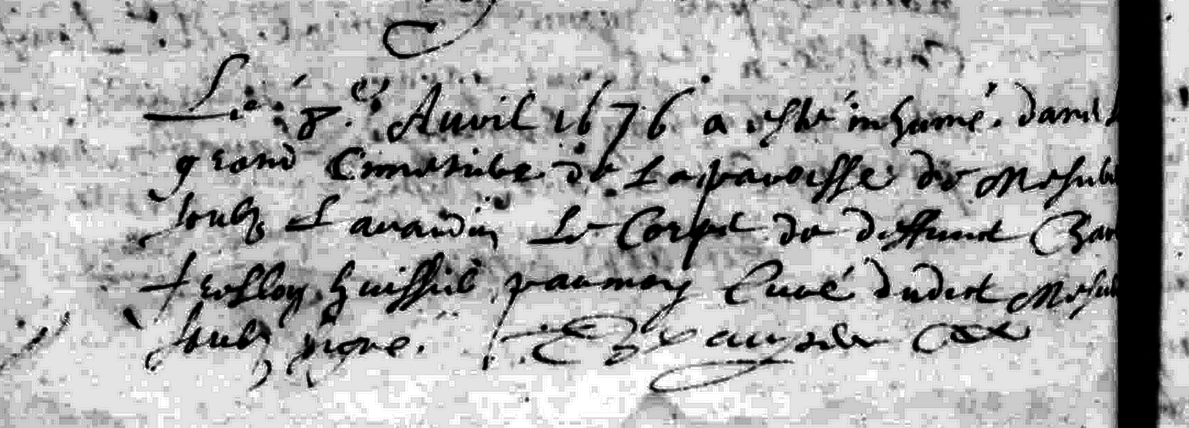 Le 8.e Auvil 1676 a esté inhumé dans l
grand Cimetiere de La paroisse de Meslie
soubz Lavardin Le Corps de deffunct Bar
huissie par moy Curé dudict Mesl
soubz signe.